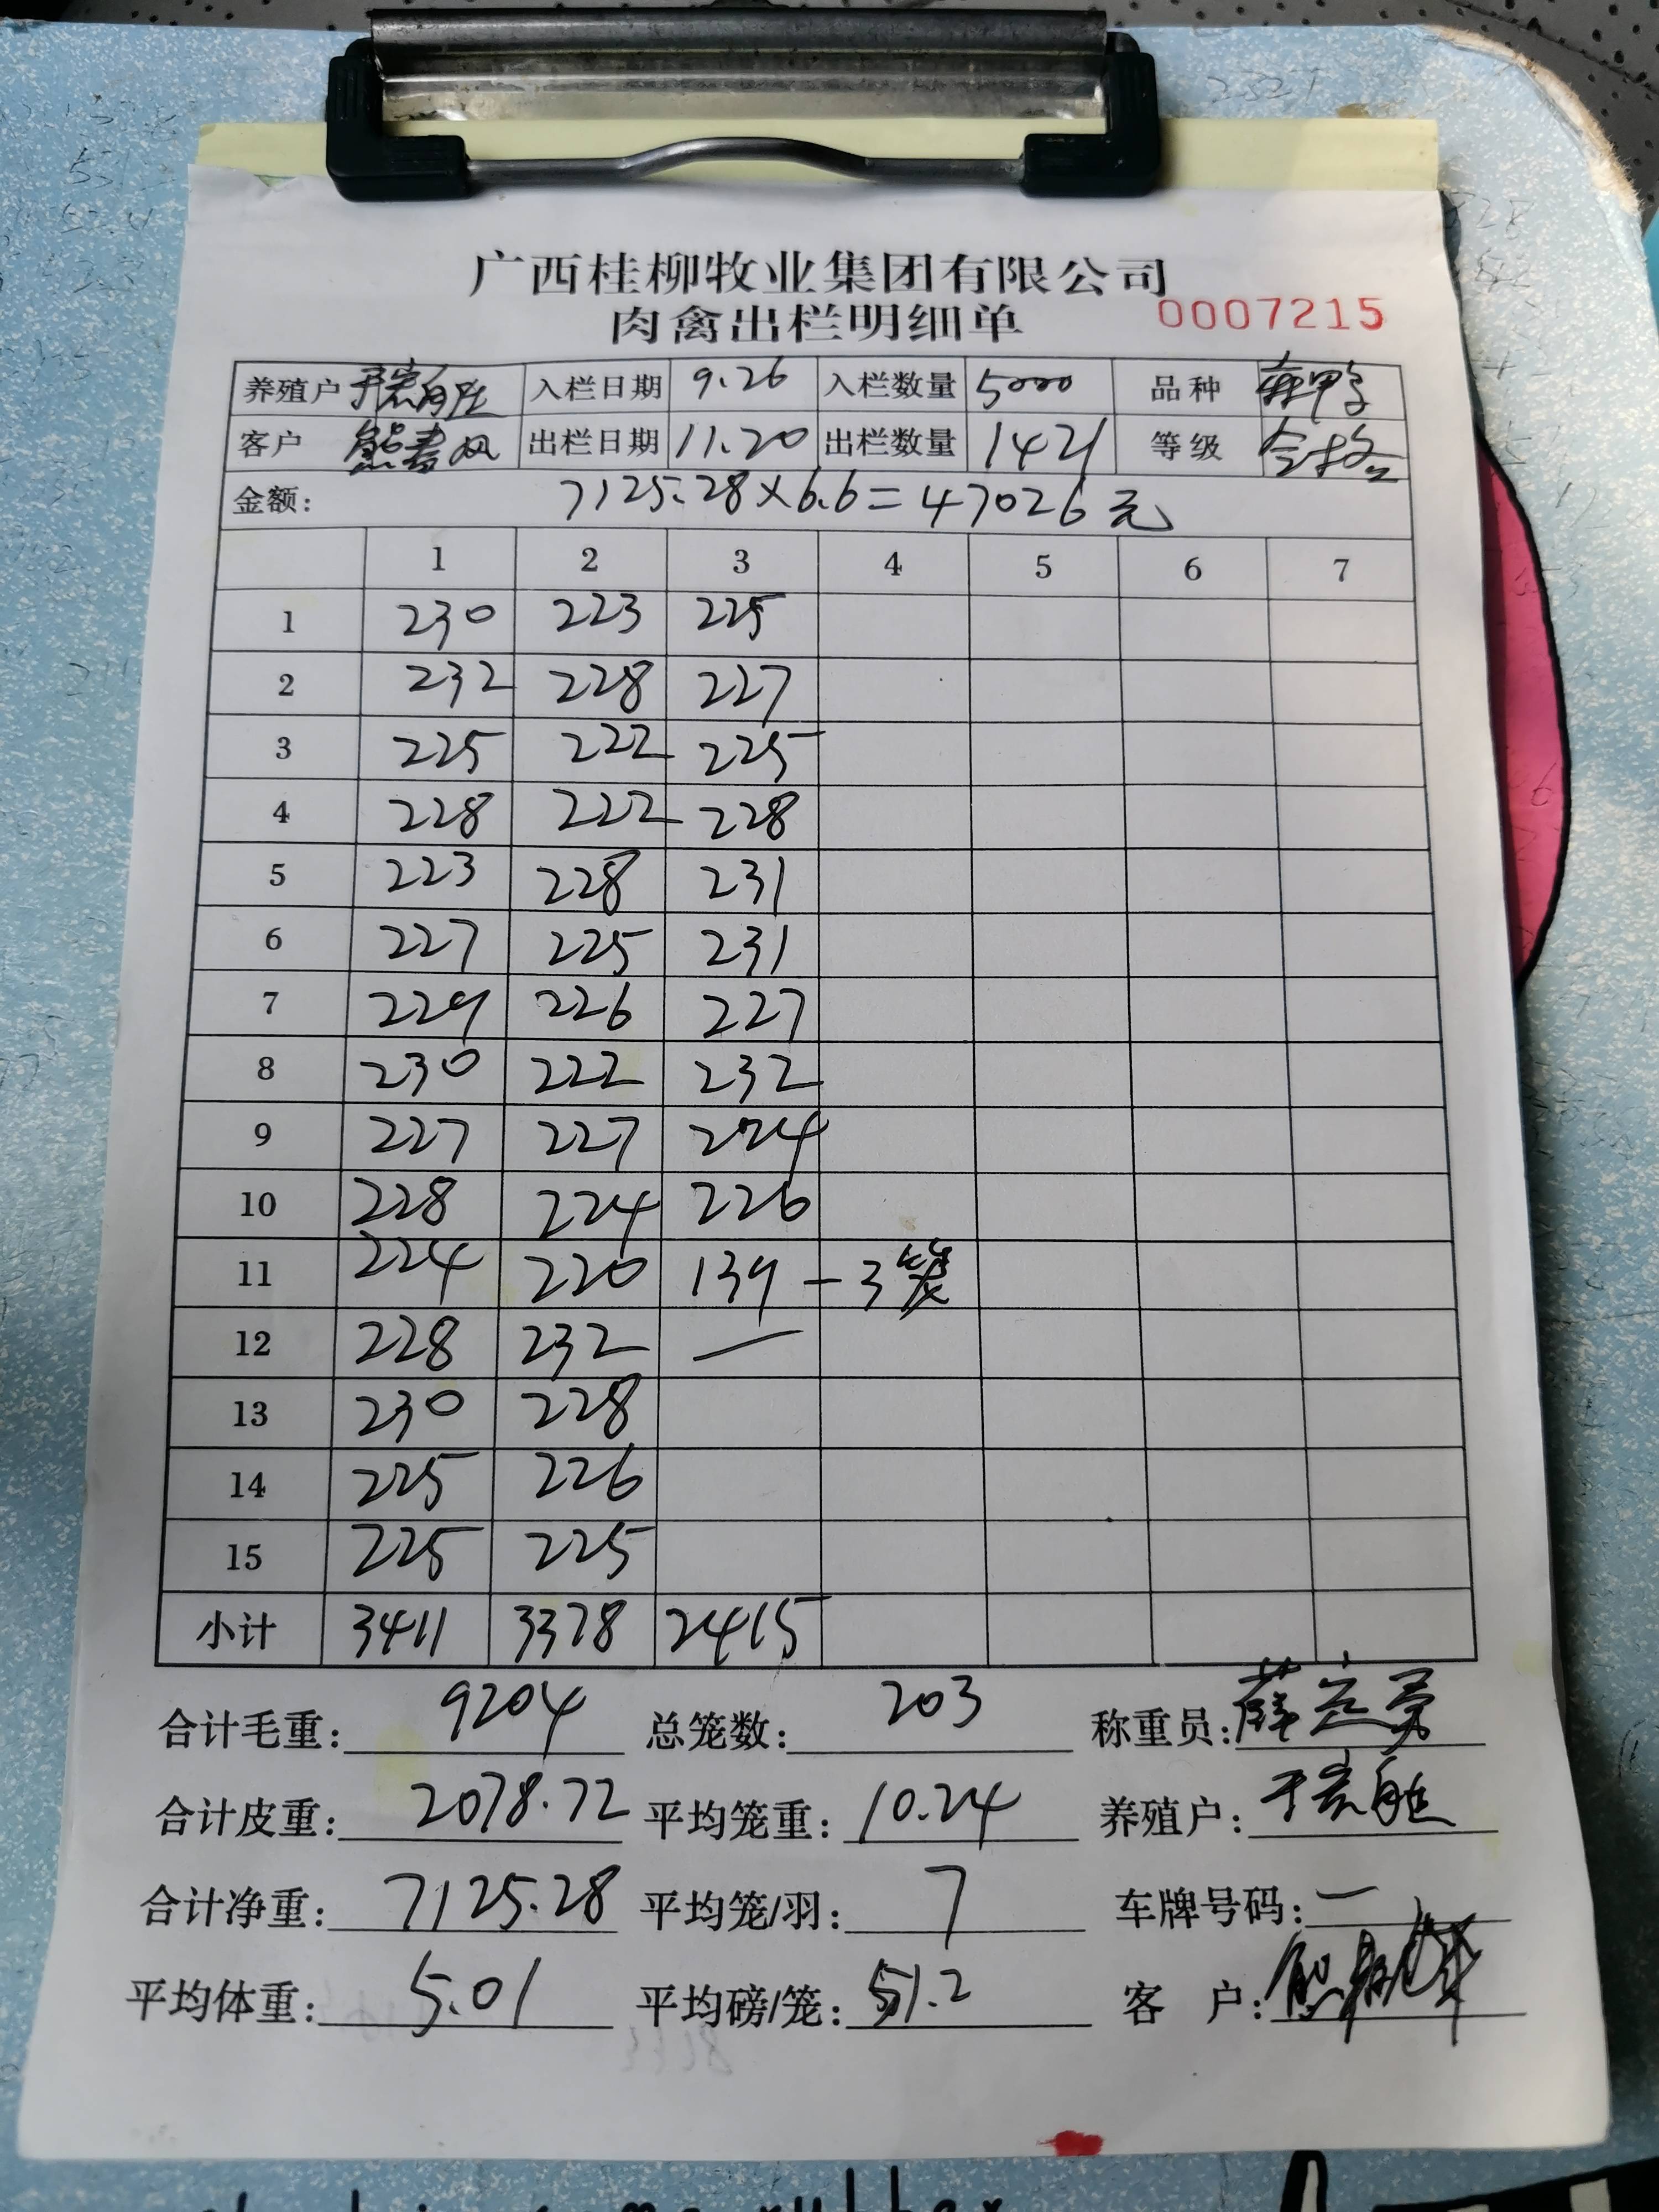 广西桂柳牧业集团有限公司
肉禽出栏明细单 0007215
养殖户 于宏胜 入栏日期 9.26 入栏数量 5000 品种
客户 出栏日期 11.20 出栏数量 1421 等级 合格
金额: 7125.28×6.6=47026元
1 2 3 4 5 6 7
1 230 223 225
2 232 228 227
3 225 222 225
4 228 222 228
5 223 228 231
6 227 225 231
7 229 226 227
8 230 222 232
9 227 227 224
10 228 224 226
11 224 220 139 - 3笼
12 228 232 —
13 230 228
14 225 226
15 225 225
小计 3411 3378 2415
合计毛重: 9204 总笼数: 203 称重员:
合计皮重: 2078.72 平均笼重: 10.24 养殖户: 于宏胜
合计净重: 7125.28 平均笼/羽: 7 车牌号码: —
平均体重: 5.01 平均磅/笼: 51.2 客 户: